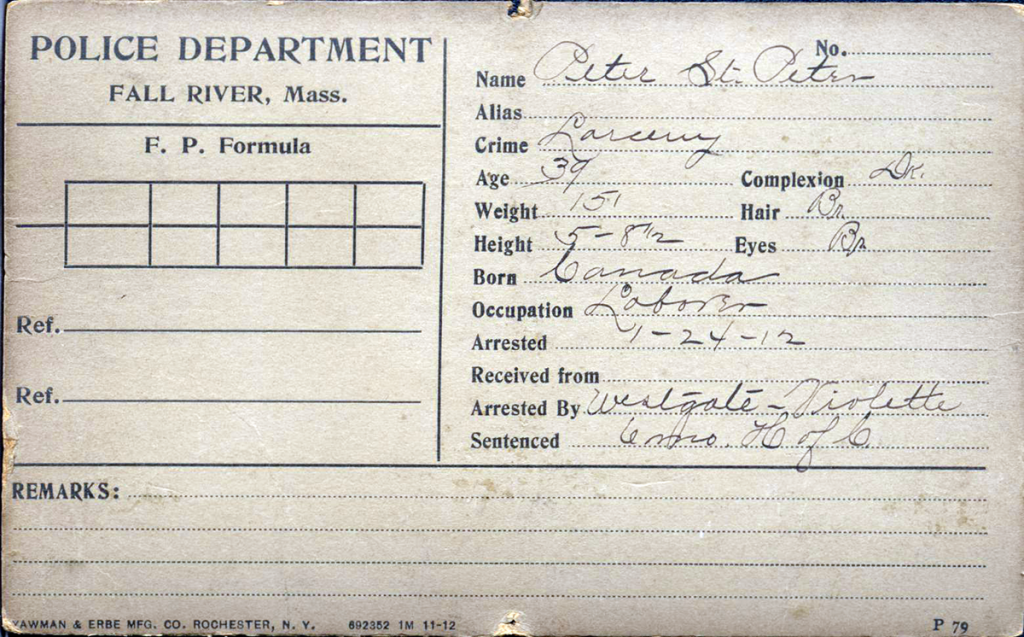 POLICE DEPARTMENT
FALL RIVER, Mass.
F. P. Formula
Ref.
Ref.
No.
Name Peter St. Peter
Alias
Crime Larceny
Age 39 Complexion Dk.
Weight 151 Hair Br
Height 5-8 1/2 Eyes Br
Born Canada
Occupation Laborer
Arrested 1-24-12
Received from
Arrested By Westgate - Violette
Sentenced 6 mo. H of C
REMARKS:
YAWMAN & ERBE MFG. CO. ROCHESTER, N. Y. 692352 1M 11-12 P 79